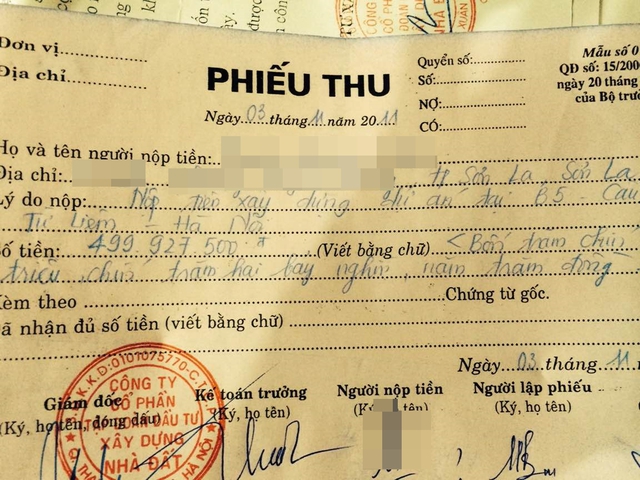 Đơn vị
Địa chỉ
PHIẾU THU
Ngày 03 tháng 11 năm 2011
Quyển số:
Số:
NỢ:
CÓ:
Mẫu số 0
QĐ số: 15/200
ngày 20 tháng
của Bộ trư
Họ và tên người nộp tiền:
Địa chỉ: Sơn La, Sơn La
Lý do nộp: Nộp tiền xây dựng dự án tại B5 - Cầu
Từ Liêm - Hà Nội
Số tiền: 499 927 500 đ (Viết bằng chữ) < Bốn trăm chín
triệu, chín trăm hai bảy nghìn, năm trăm đồng
Kèm theo Chứng từ gốc.
Đã nhận đủ số tiền (viết bằng chữ)
Ngày 03 tháng 11
Giám đốc
(Ký, họ tên, đóng dấu)
Kế toán trưởng
(Ký, họ tên)
Người nộp tiền
(Ký, họ tên)
Người lập phiếu
(Ký, họ tên)
K.K.D:0101075770-C.T
CÔNG TY
CỔ PHẦN
TẬP ĐOÀN ĐẦU TƯ
XÂY DỰNG
NHÀ ĐẤT
HÀ NỘI
CÔNG
CỔ PHẦN